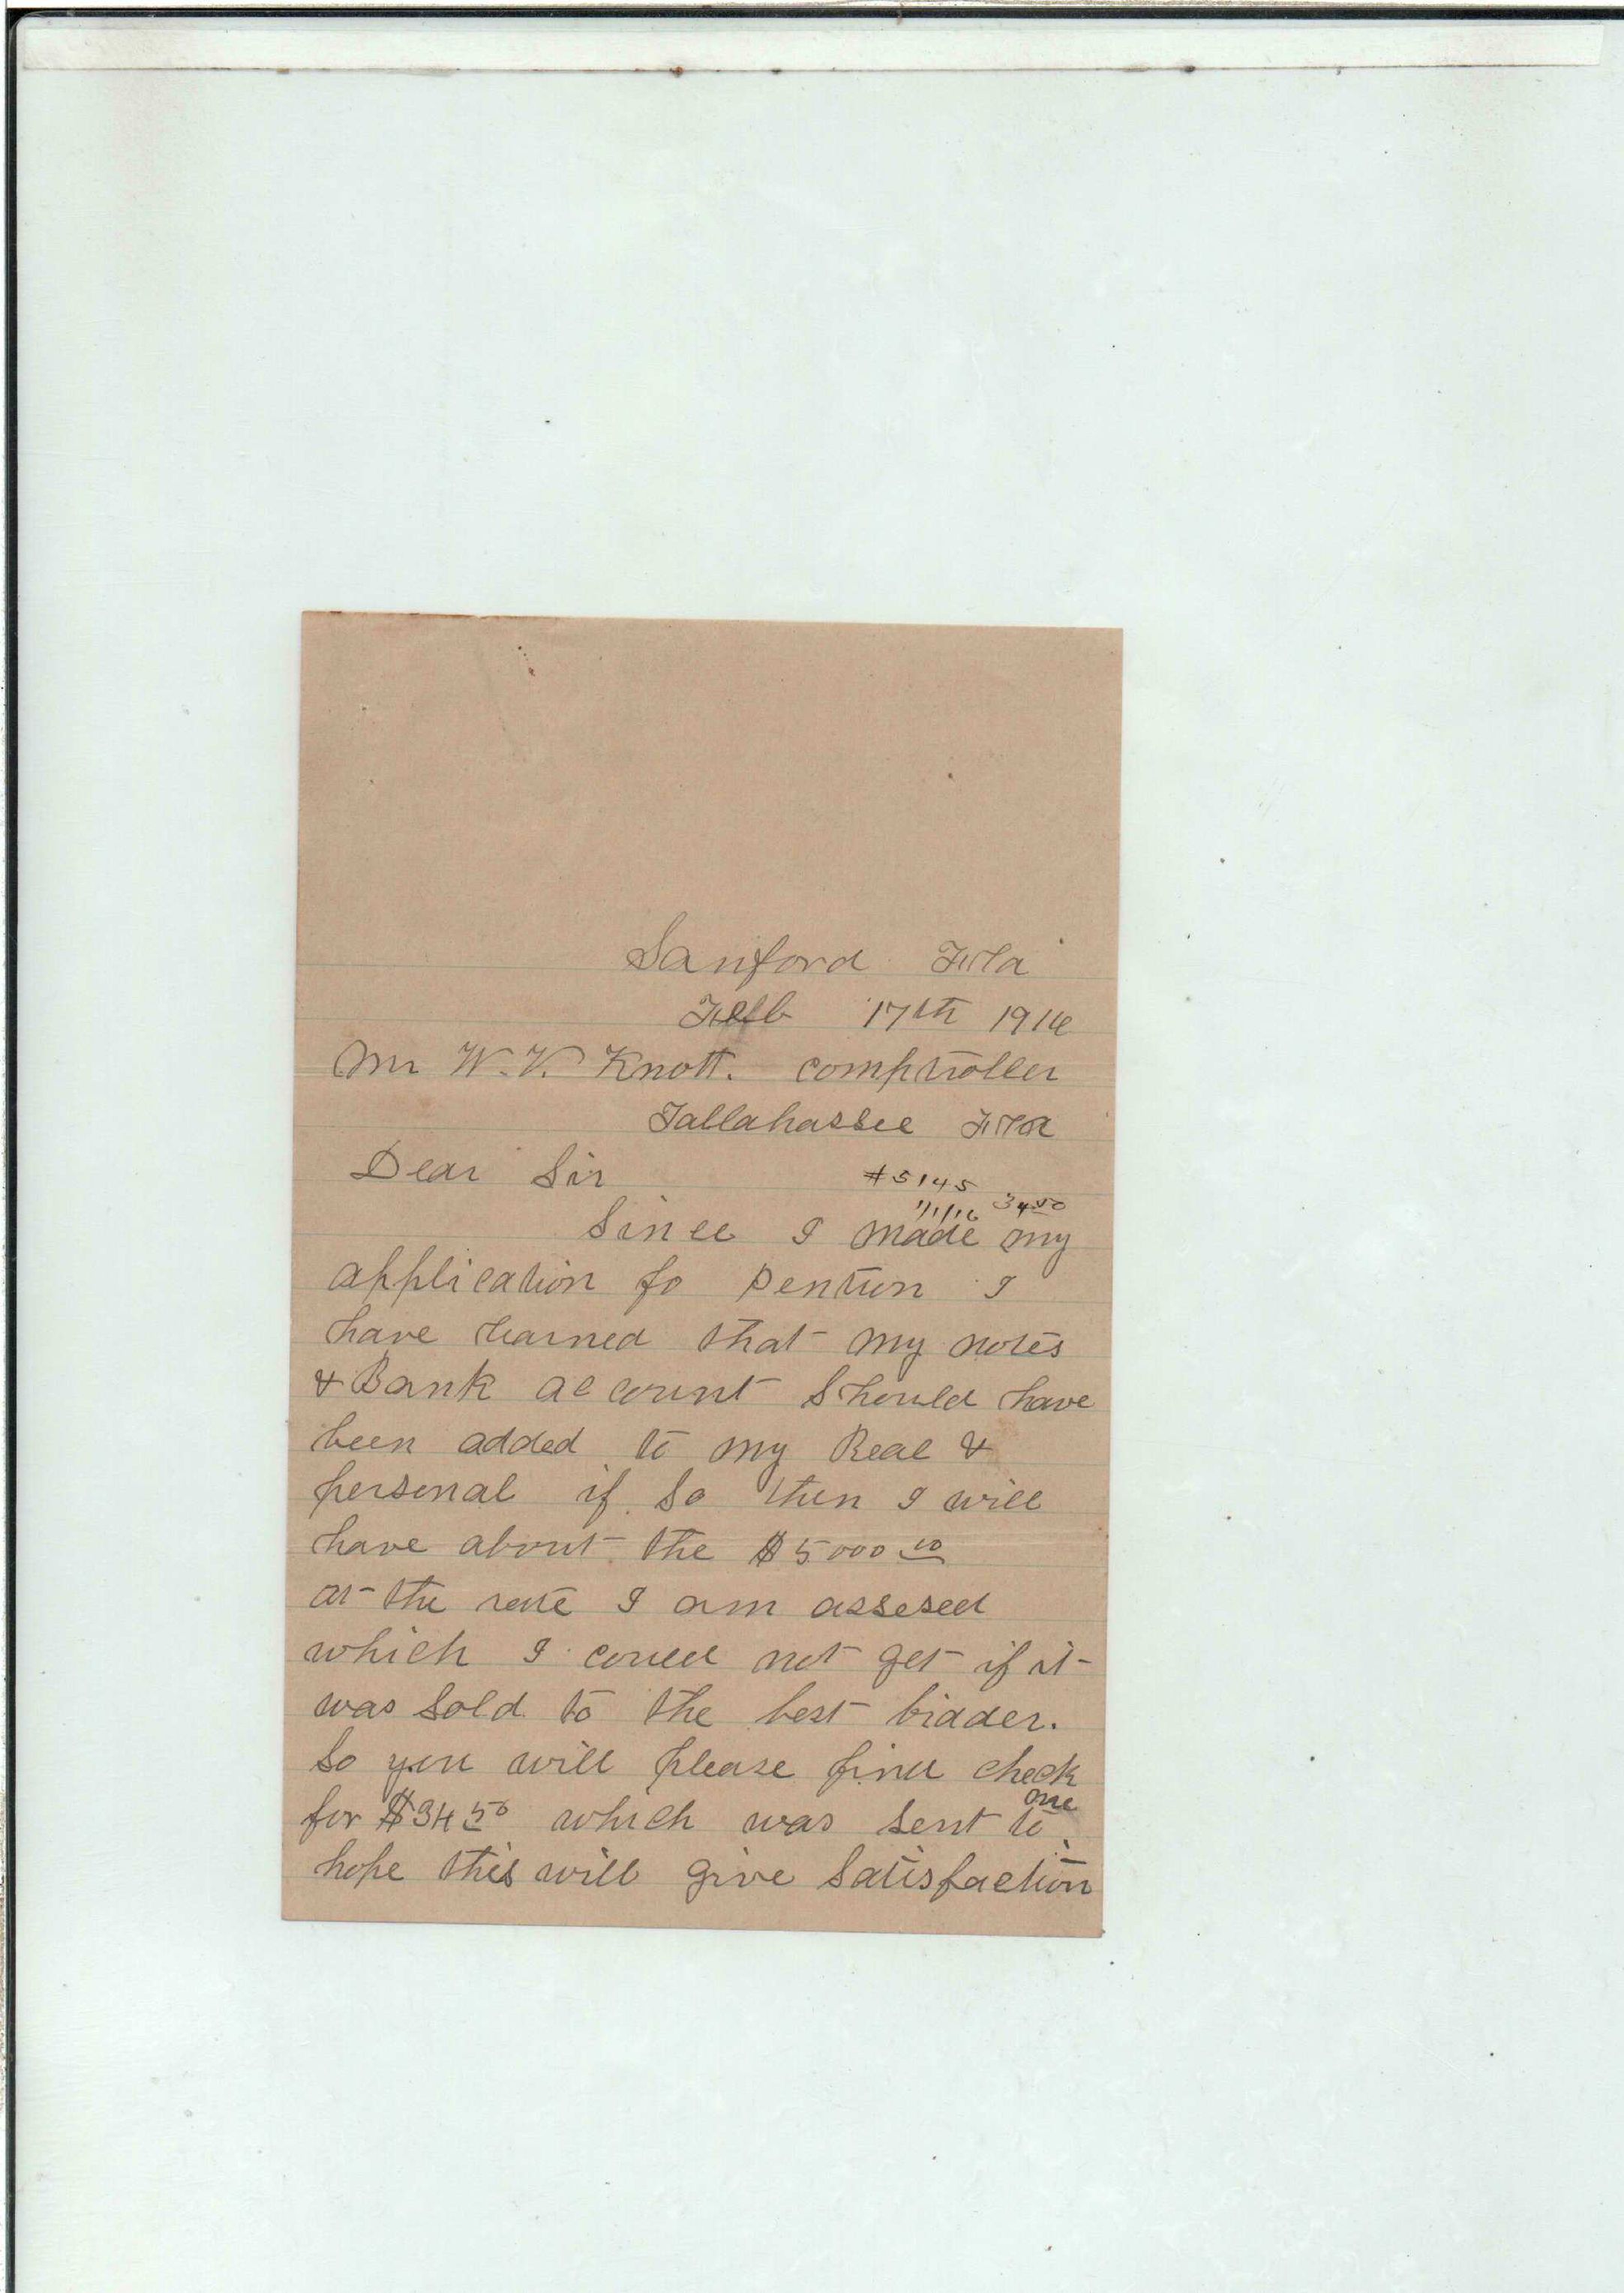 Sanford Fla
Feb 17th 1916
Mr W.V. Knott. comptroller
Tallahassee Fla
Dear Sir
#5145
1/1/16 34 50
Since I made my
application fo Pention I
have learned that my notes
& Bank account should have
been added to my Real &
personal if so then I will
have about the $5000 00
at the rate I am assesed
which I could not get if it
was sold to the best bidder.
So you will please find check
for $34 50 which was sent to me
hope this will give satisfaction